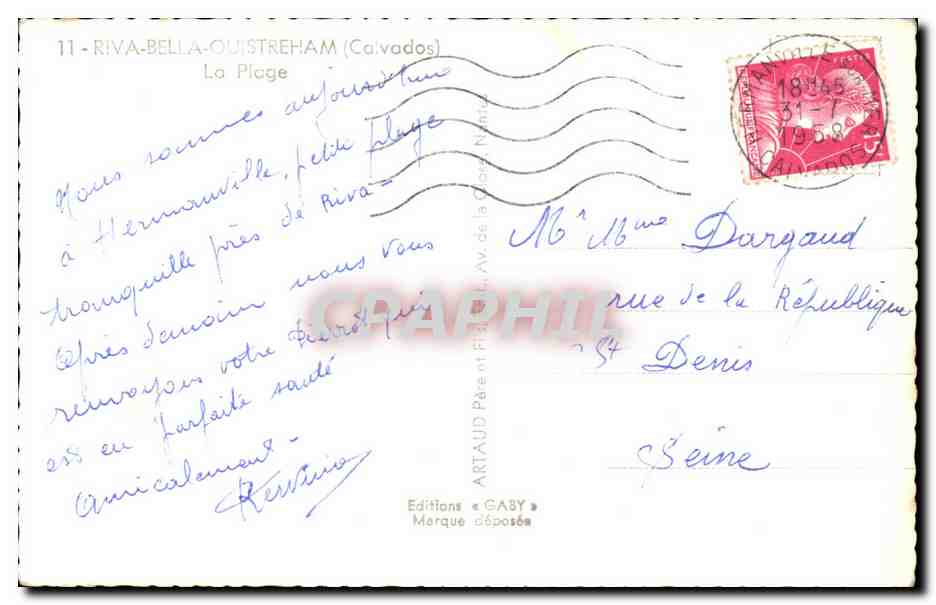 11 - RIVA-BELLA-OUISTREHAM (Calvados)
La Plage
Nous sommes aujourd'hui
à Hermanville, petite plage
tranquille près de Riva-
Après demain nous vous
renvoyons votre Pierrot qui
est en parfaite santé
Amicalement -
ARTAUD Père et Fils Av. de la Close, Nantes
Editions « GABY »
Marque déposée
18H45
31-7
1958
CALVADOS
15
Mr Mme Dargaud
rue de la République
St Denis
Seine
CPAPHIL